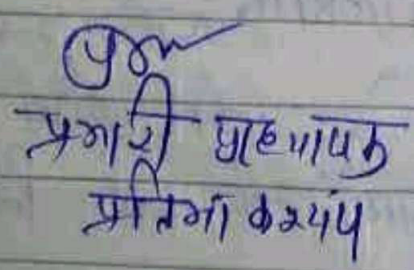 प्रभारी प्राध्यापक
प्रतिमा कश्यप